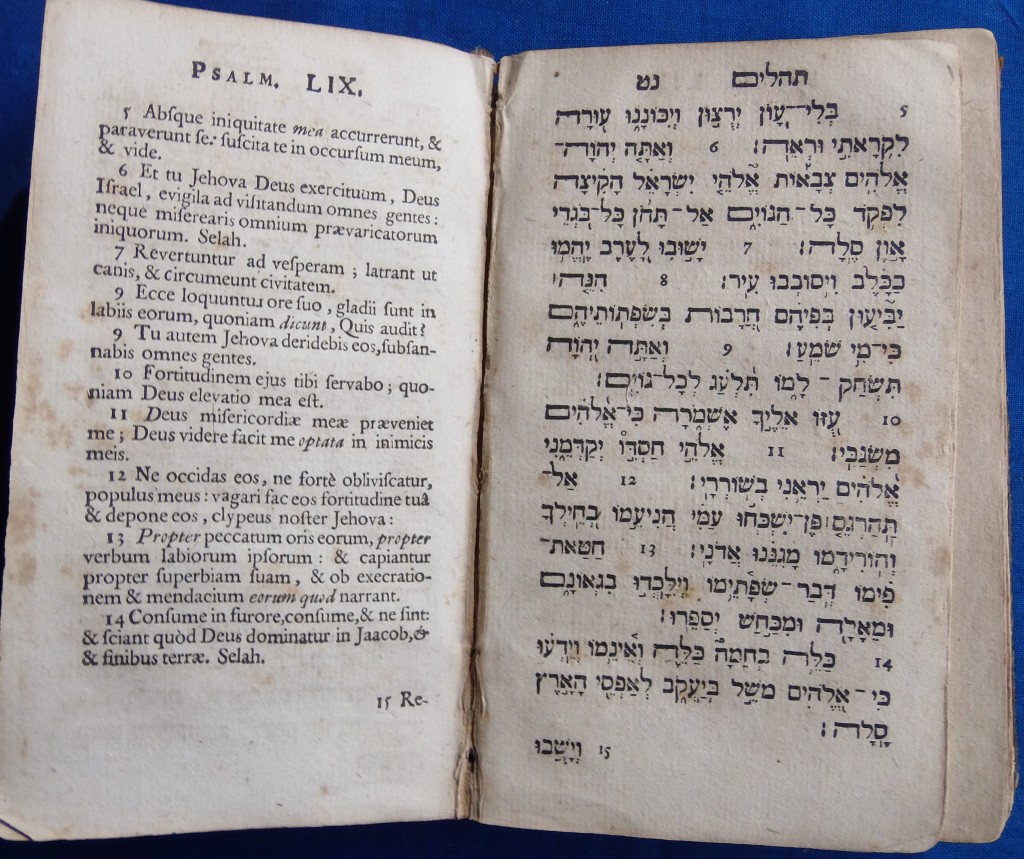 PSALM. LIX.
5 Abſque iniquitate mea accurrerunt, &
paraverunt ſe: ſuſcita te in occurſum meum,
& vide.
6 Et tu Jehova Deus exercituum, Deus
Iſrael, evigila ad viſitandum omnes gentes:
neque miſerearis omnium prævaricatorum
iniquorum. Selah.
7 Revertuntur ad veſperam; latrant ut
canis, & circumeunt civitatem.
9 Ecce loquuntur ore ſuo, gladii ſunt in
labiis eorum, quoniam dicunt, Quis audit?
9 Tu autem Jehova deridebis eos, ſubſan-
nabis omnes gentes.
10 Fortitudinem ejus tibi ſervabo; quo-
niam Deus elevatio mea eſt.
11 Deus miſericordiæ meæ præveniet
me; Deus videre facit me optata in inimicis
meis.
12 Ne occidas eos, ne fortè obliviſcatur,
populus meus: vagari fac eos fortitudine tuâ
& depone eos, clypeus noſter Jehova:
13 Propter peccatum oris eorum, propter
verbum labiorum ipſorum: & capiantur
propter ſuperbiam ſuam, & ob execratio-
nem & mendacium eorum quod narrant.
14 Conſume in furore, conſume, & ne ſint:
& ſciant quòd Deus dominatur in Jaacob, &
& finibus terræ. Selah.
15 Re-
תהלים נט
5 בְּלִי־עָוֺן יְרֻצוּן וְיִכּוֹנָנוּ עוּרָה
לִקְרָאתִי וּרְאֵה׃ 6 וְאַתָּה יְהוָה־
אֱלֹהִים צְבָאוֹת אֱלֹהֵי יִשְׂרָאֵל הָקִיצָה
לִפְקֹד כָּל־הַגּוֹיִם אַל־תָּחֹן כָּל־בֹּגְדֵי
אָוֶן סֶלָה׃ 7 יָשׁוּבוּ לָעֶרֶב יֶהֱמוּ
כַכָּלֶב וִיסוֹבְבוּ עִיר׃ 8 הִנֵּה׀
יַבִּיעוּן בְּפִיהֶם חֲרָבוֹת בְּשִׂפְתוֹתֵיהֶם
כִּי־מִי שֹׁמֵעַ׃ 9 וְאַתָּה יְהוָה
תִּשְׂחַק־לָמוֹ תִּלְעַג לְכָל־גּוֹיִם׃
10 עֻזּוֹ אֵלֶיךָ אֶשְׁמֹרָה כִּי־אֱלֹהִים
מִשְׂגַּבִּי׃ 11 אֱלֹהֵי חַסְדּוֹ יְקַדְּמֵנִי
אֱלֹהִים יַרְאֵנִי בְשֹׁרְרָי׃ 12 אַל־
תַּהַרְגֵם פֶּן־יִשְׁכְּחוּ עַמִּי הֲנִיעֵמוֹ בְחֵילְךָ
וְהוֹרִידֵמוֹ מָגִנֵּנוּ אֲדֹנָי׃ 13 חַטַּאת־
פִּימוֹ דְּבַר־שְׂפָתֵימוֹ וְיִלָּכְדוּ בִגְאוֹנָם
וּמֵאָלָה וּמִכַּחַשׁ יְסַפֵּרוּ׃
14 כַּלֵּה בְחֵמָה כַּלֵּה וְאֵינֵמוֹ וְיֵדְעוּ
כִּי־אֱלֹהִים מֹשֵׁל בְּיַעֲקֹב לְאַפְסֵי הָאָרֶץ
סֶלָה׃
15 וְיָשֻׁבוּ